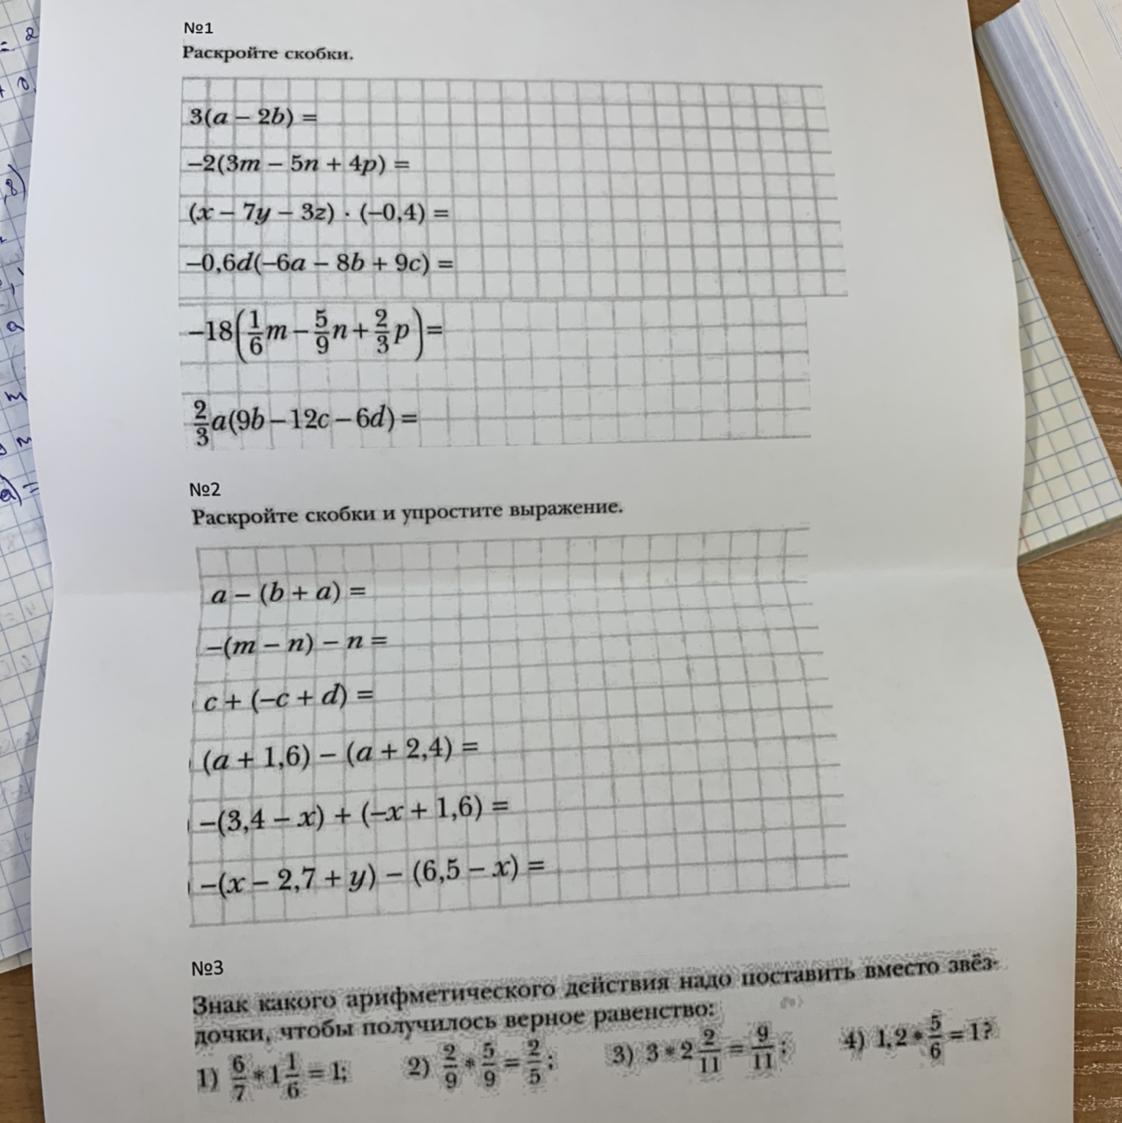 №1
Раскройте скобки.
3(a − 2b) =
−2(3m − 5n + 4p) =
(x − 7y − 3z) · (−0,4) =
−0,6d(−6a − 8b + 9c) =
−18(1/6 m − 5/9 n + 2/3 p) =
2/3 a(9b − 12c − 6d) =
№2
Раскройте скобки и упростите выражение.
a − (b + a) =
−(m − n) − n =
c + (−c + d) =
(a + 1,6) − (a + 2,4) =
−(3,4 − x) + (−x + 1,6) =
−(x − 2,7 + y) − (6,5 − x) =
№3
Знак какого арифметического действия надо поставить вместо звёз-
дочки, чтобы получилось верное равенство:
1) 6/7 * 1 1/6 = 1; 2) 2/9 * 5/9 = 2/5; 3) 3 * 2 2/11 = 9/11; 4) 1,2 * 5/6 = 1?